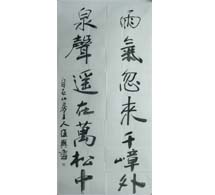 雨氣忽來千嶂外
泉聲遥在萬松中